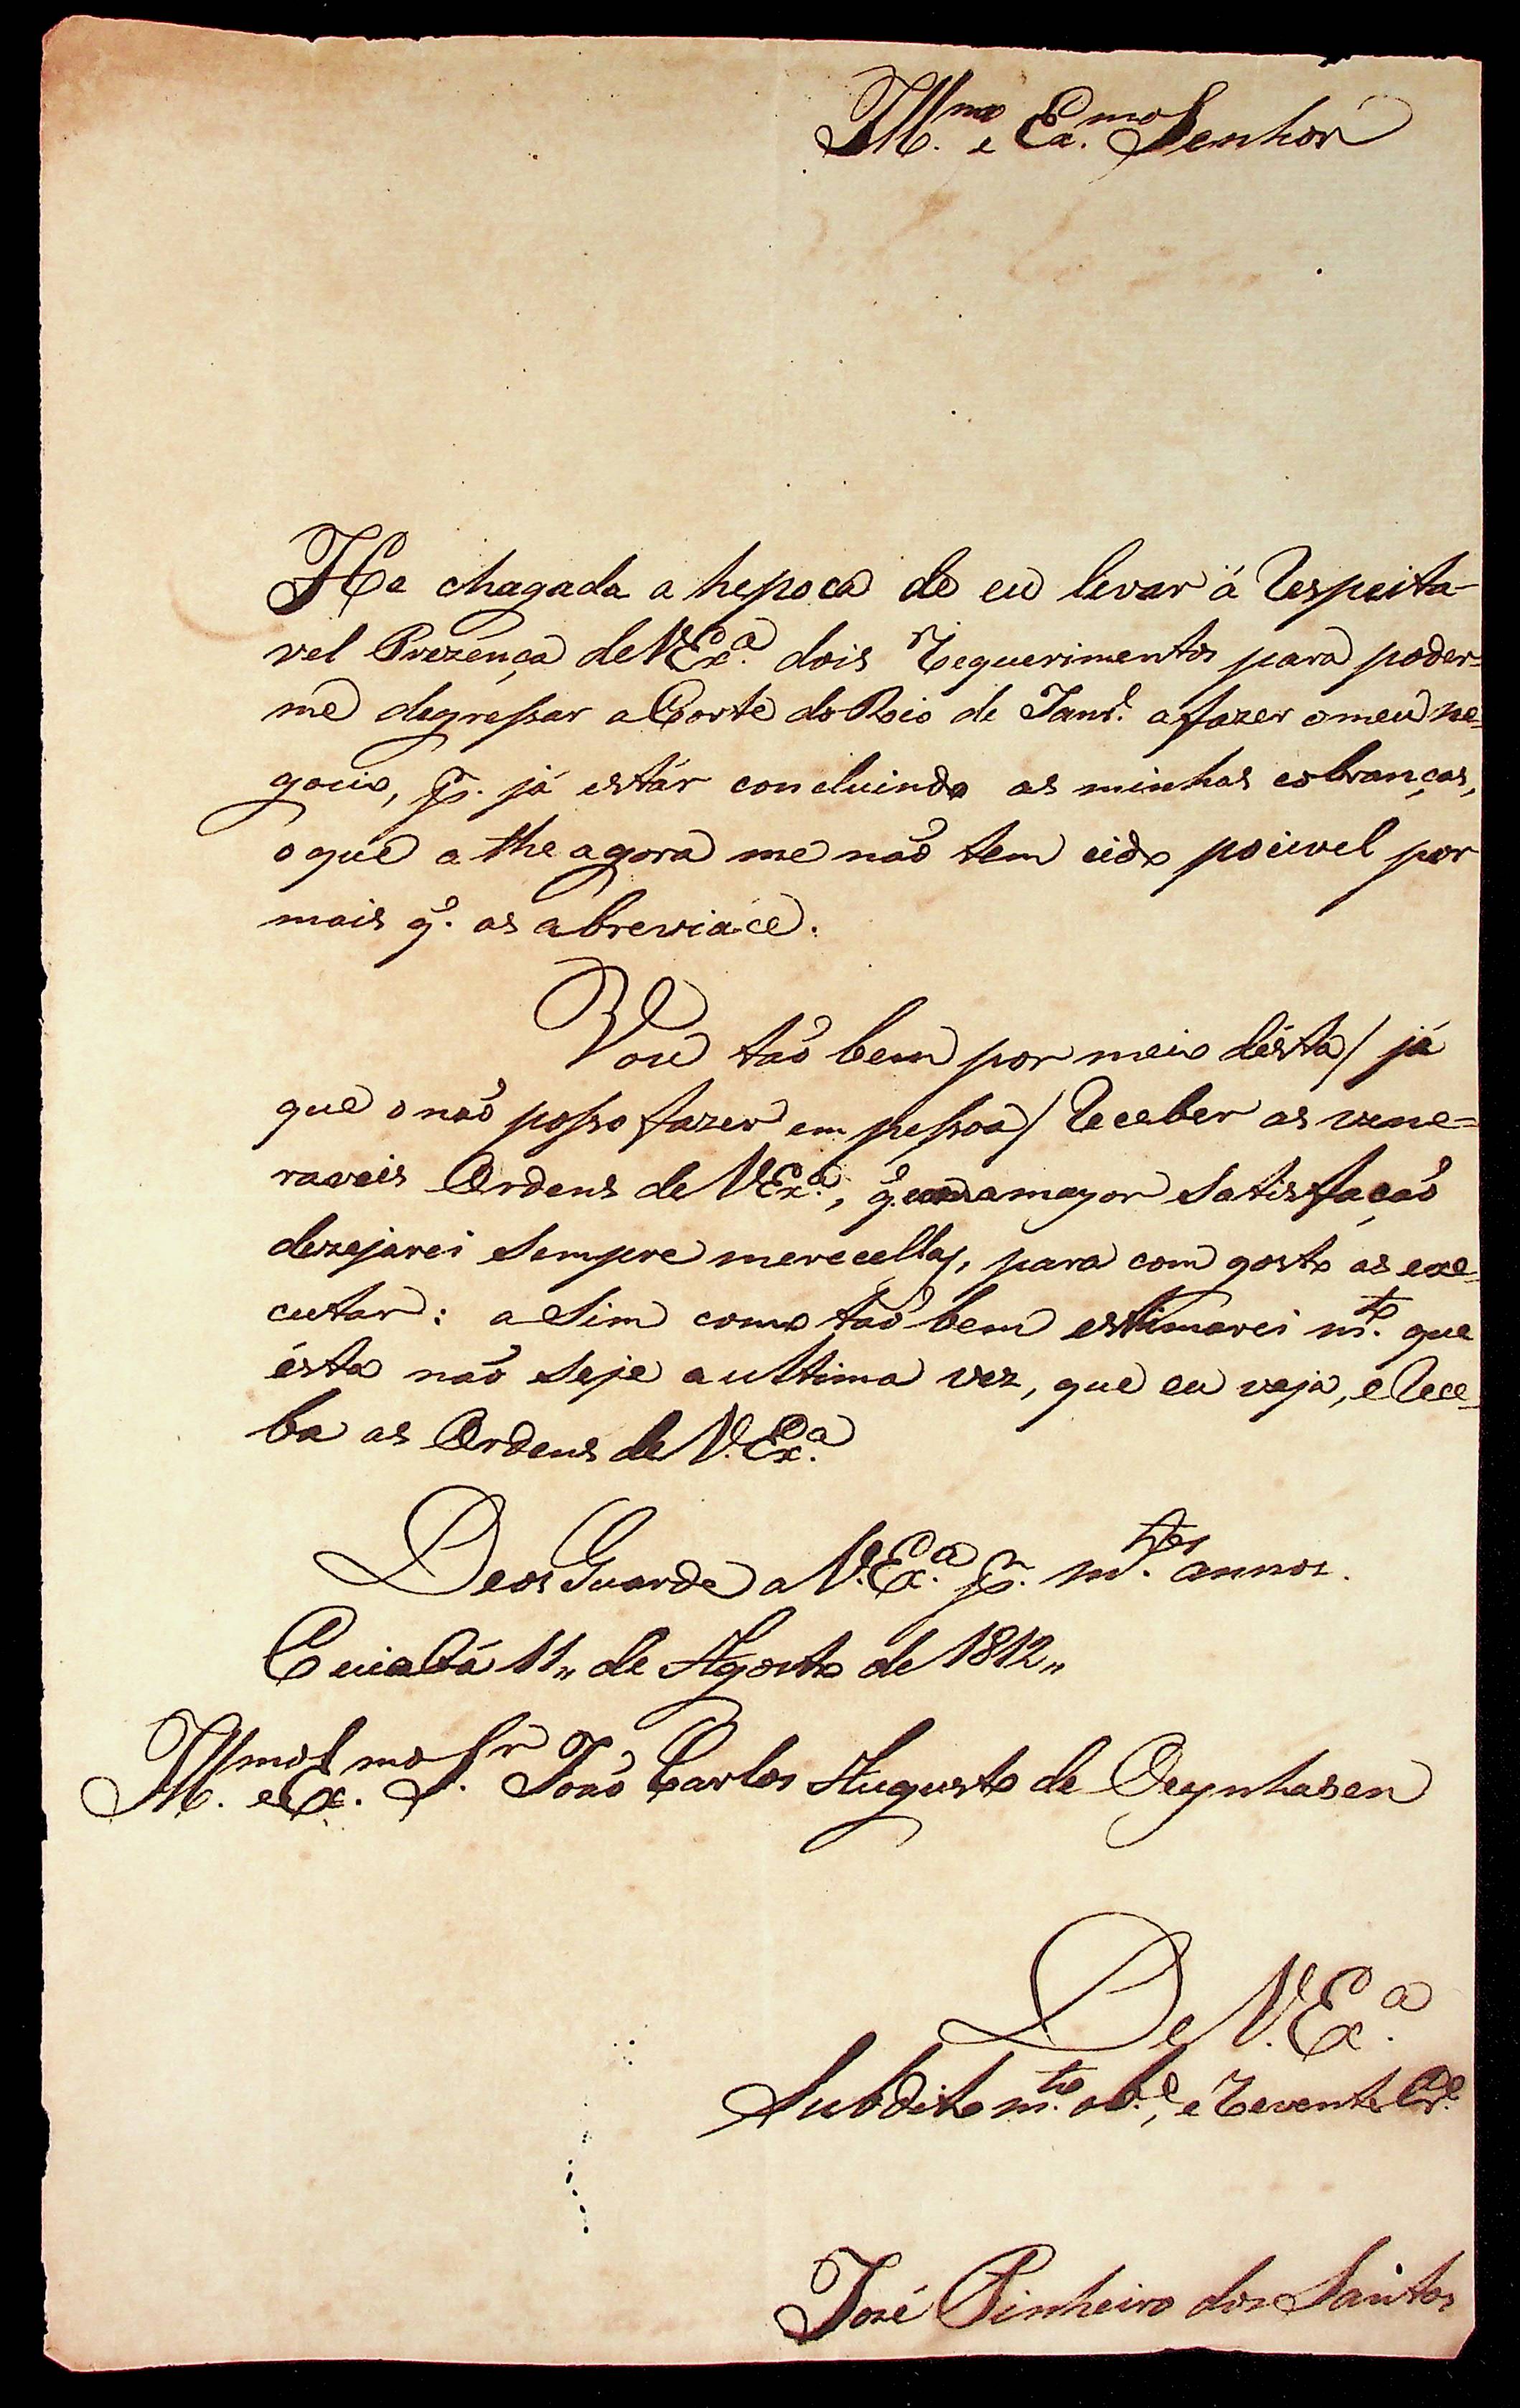 Ill.mo e Ex.mo Senhor
He chagada a hepoca de eu levar á Respeita-
vel Prezença de VEx.a dois Requerimentos para poder-
me degressar a Corte do Rio de Janr.o a fazer o meu ne-
gocio, p.r já estár concluindo as minhas cobranças,
o que a the agora me naõ tem cido pocivel por
mais q.e as abreviáce.
Vou taõ bem por meio désta / já
que o naõ posso fazer em pessoa / Receber as vene-
raveis Ordens de VEx.a, q.e com a mayor Satisfaçaõ
dezejarei Sempre merecellas, para com gosto as exe-
cutar: a Sim como taõ bem estimarei m.to que
ésta naõ Seje a ultima vez, que eu veja, e Rece-
ba as Ordens de V.Ex.a
Deos Guarde a V.Ex.a p.r m.tos annos.
Cuiabá 11,, de Agosto de 1812,,
Ill.mo e Ex.mo S.r Joaõ Carlos Augusto de Oeynhasen
De V.Ex.a
Subdito m.to ob.e, e Revente Cr.o
José Pinheiro dos Santos